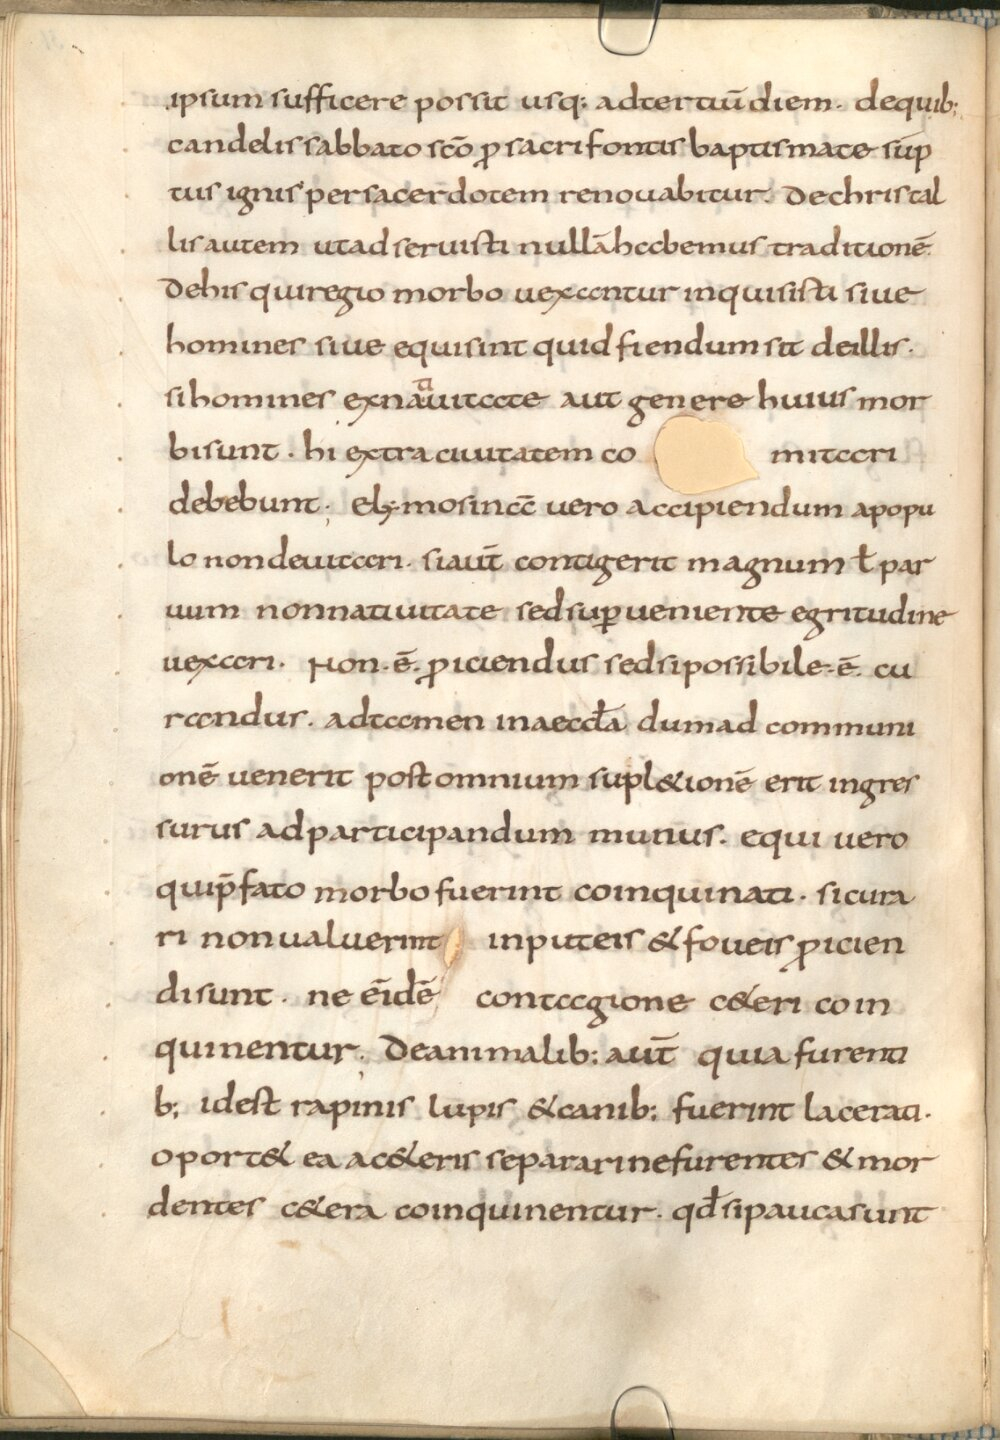 ipsum sufficere possit usq; ad tertiū diem. de quib;
candelis sabbato sc̄o ꝓ sacri fontis baptismate sūp
tus ignis per sacerdotem renouabitur. De christal
lis autem ut adseruisti nullā habemus traditionē.
De his qui regio morbo uexantur inquisisti siue
homines siue equi sint quid fiendum sit de illis.
si homines ex natiuitate aut genere huius mor
bi sunt. hi extra ciuitatem co mitari
debebunt. Elymosinā vero accipiendum a popu
lo non deuitari. si aut̄ contigerit magnum ł par
uum non natiuitate sed suꝑueniente egritudine
uexari. Non. ē. ꝓiciendus sed si possibile. ē. cu
randus. adtamen in aeccl̄a dum ad communi
onē venerit post omnium supl&ionē erit ingres
surus ad participandum munus. equi vero
qui p̄fato morbo fuerint coinquinati. si cura
ri non ualuerint in puteis & foueis ꝓicien
di sunt. ne ēidē contagione c&eri coin
quinentur. De animalib; aut̄ quia furenti
b; id est rapinis lupis & canib; fuerint lacerati.
oport& ea a c&eris separari ne furentes & mor
dentes c&era coinquinentur. qđ si pauca sunt